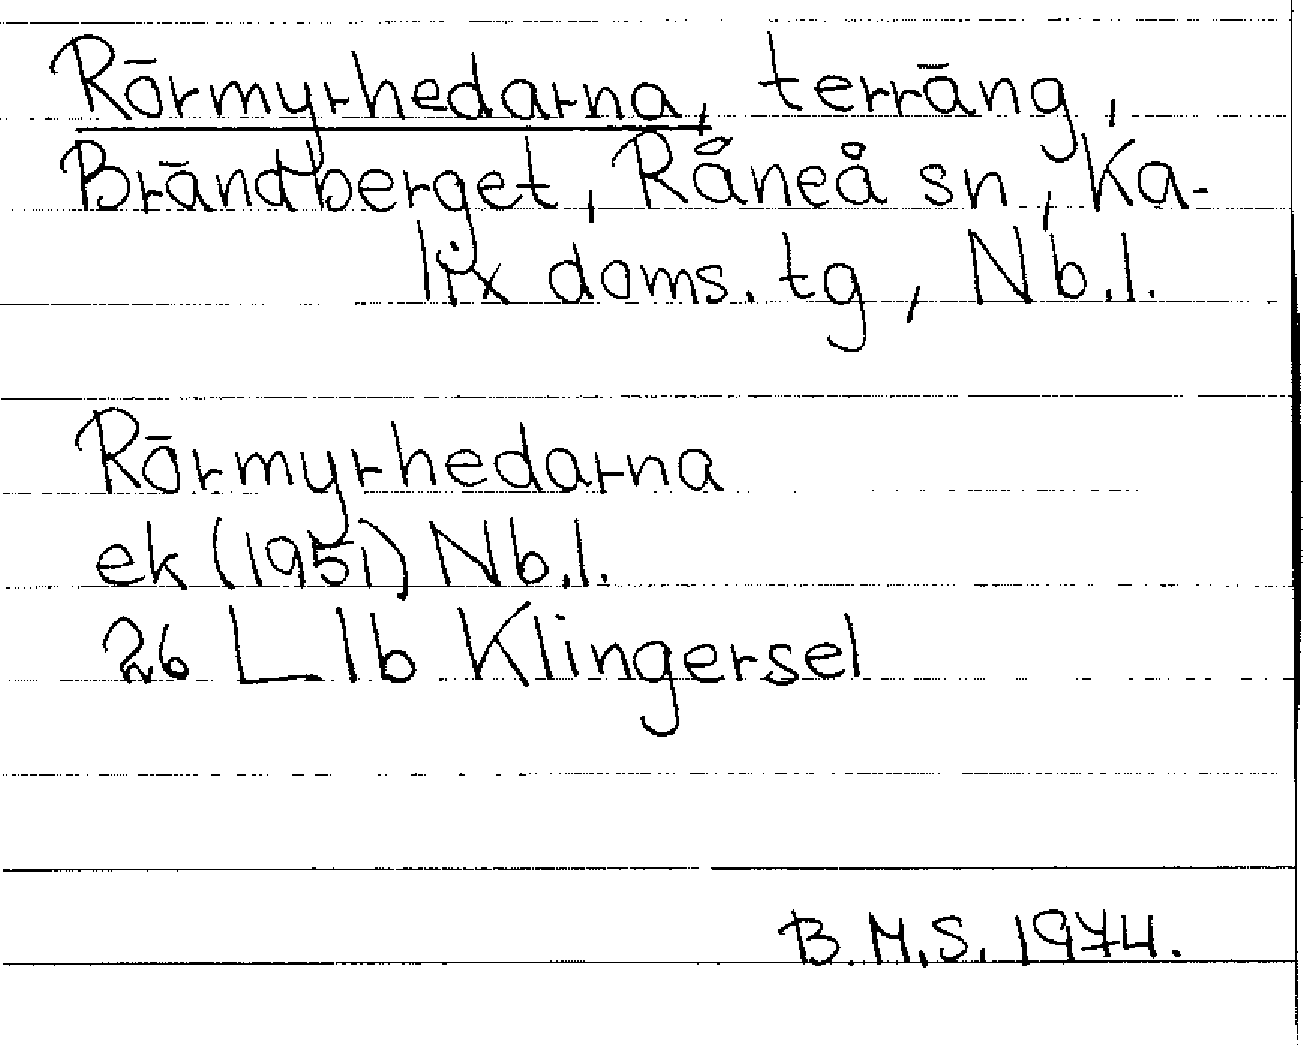 Rörmyrhedarna, terräng,
Brändberget, Råneå sn, Ka-
lix doms. tg, Nb.l.
Rörmyrhedarna
ek (1951) Nb.l.
26 L 1b Klingersel
B.M.S. 1974.